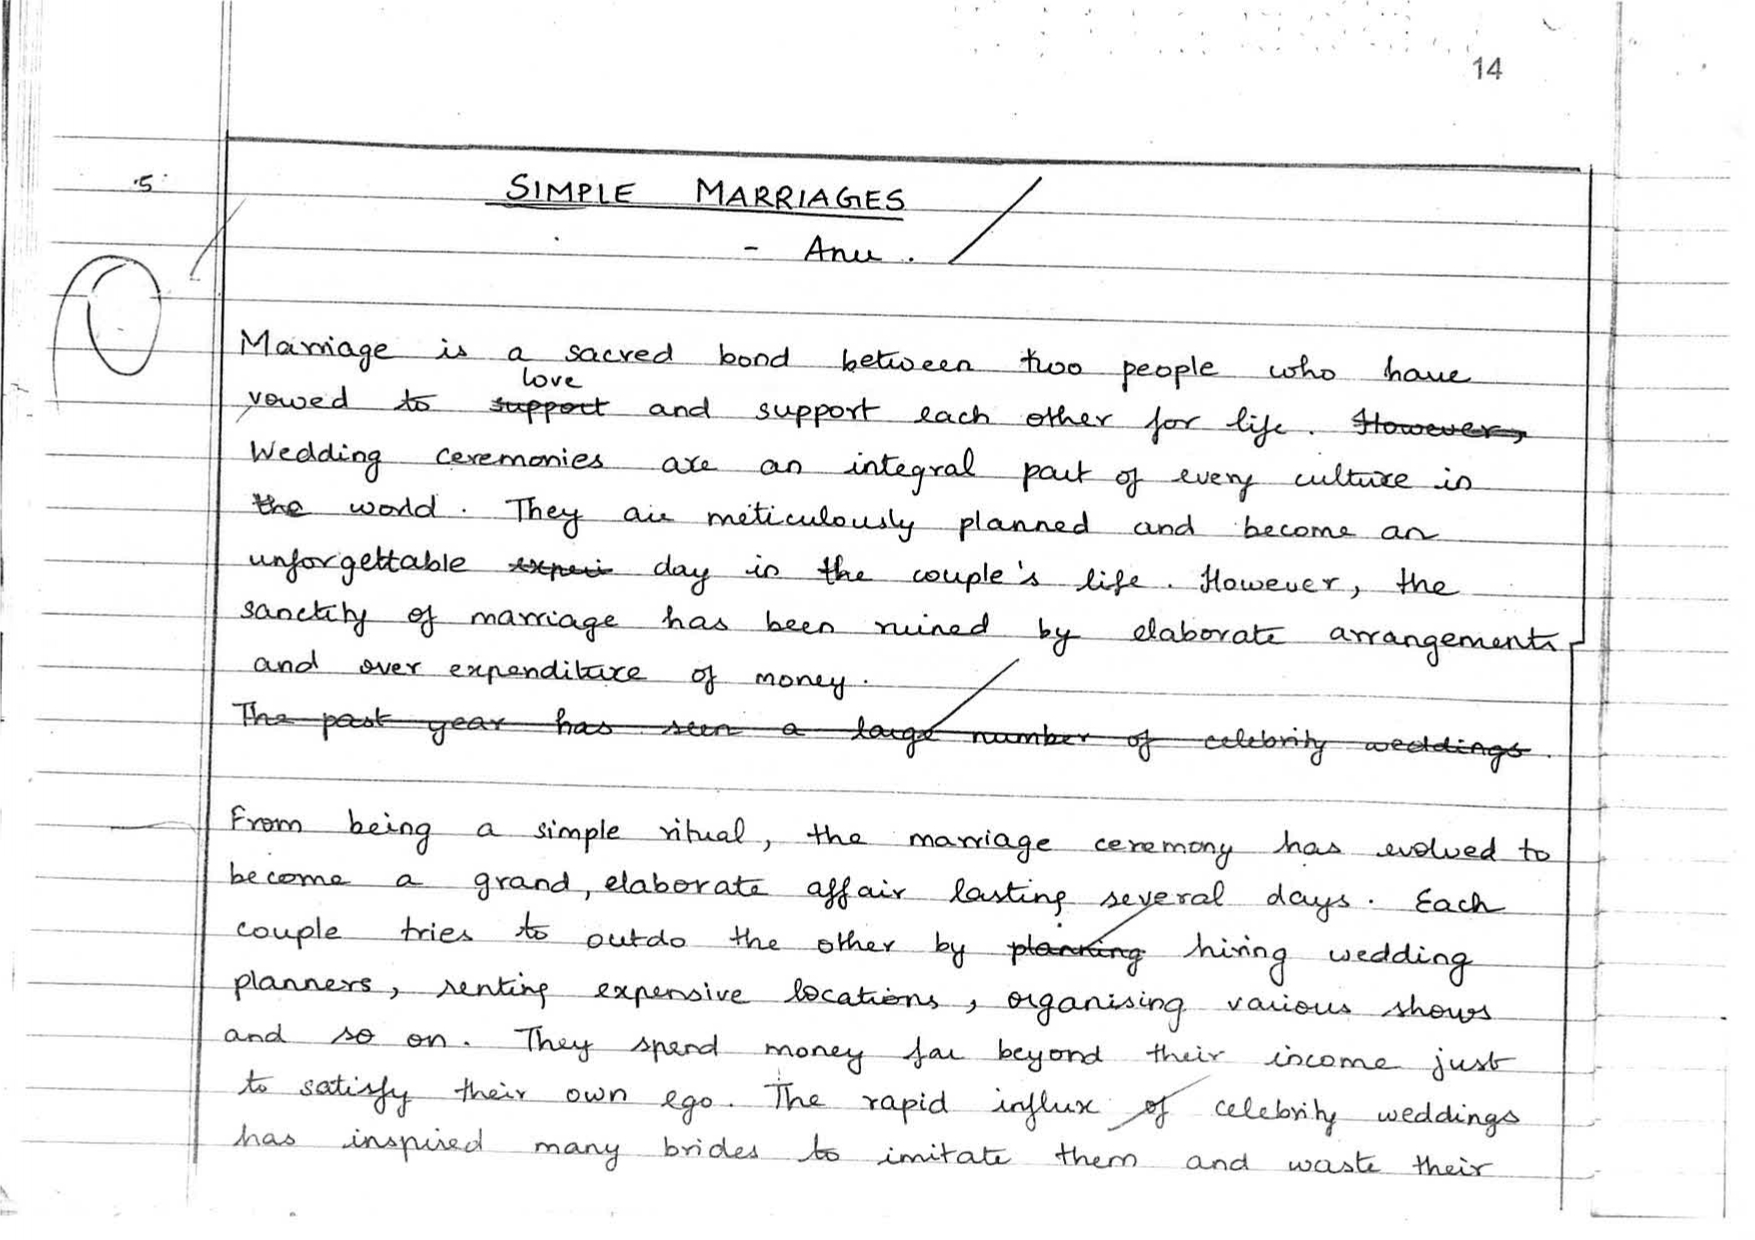 14
5
SIMPLE MARRIAGES
- Anu.
Marriage is a sacred bond between two people who have
love
vowed to support and support each other for life. However,
Wedding ceremonies are an integral part of every culture in
the world. They are meticulously planned and become an
unforgettable experi day in the couple's life. However, the
sanctity of marriage has been ruined by elaborate arrangements
and over expenditure of money.
The past year has seen a large number of celebrity weddings.
From being a simple ritual, the marriage ceremony has evolved to
become a grand, elaborate affair lasting several days. Each
couple tries to outdo the other by planning hiring wedding
planners, renting expensive locations, organising various shows
and so on. They spend money far beyond their income just
to satisfy their own ego. The rapid influx of celebrity weddings
has inspired many brides to imitate them and waste their